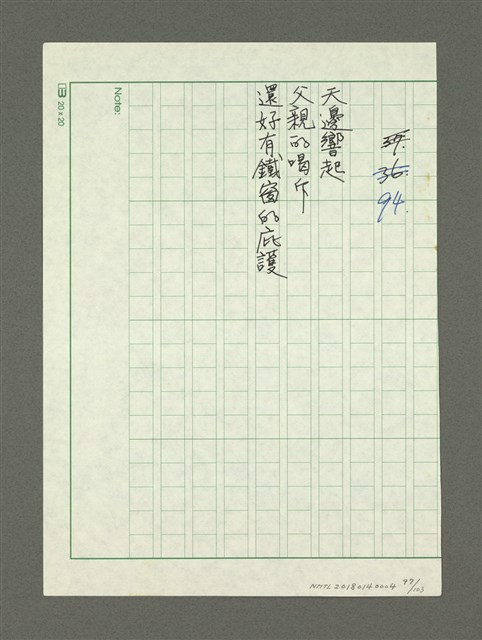 36.
94.
天邊響起
父親的喝斥
還好有鐵窗的庇護
Note:
20×20
NMTL20180140004 97/103